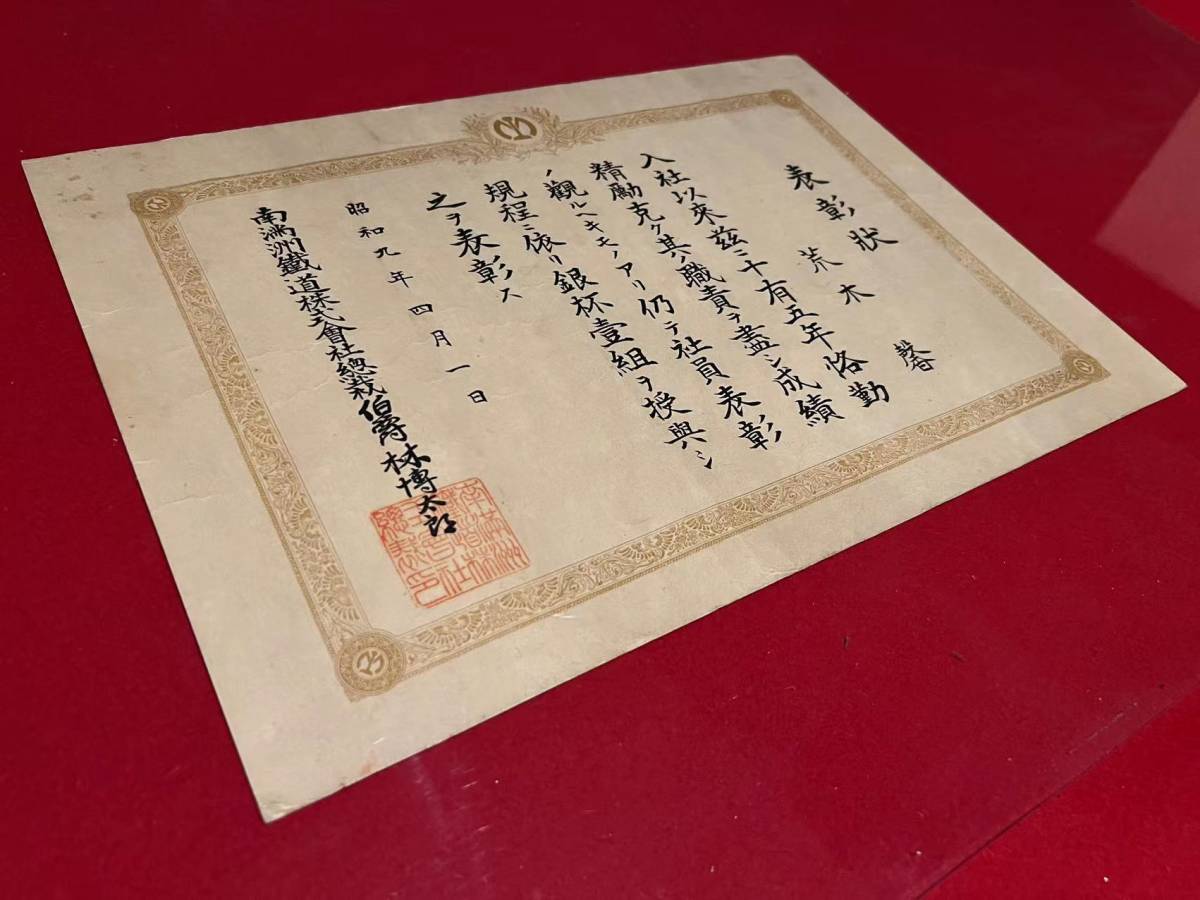 表彰状
荒木 馨
入社以來茲ニ十有五年恪勤
精勵克ク其ノ職責ヲ盡シ成績
ノ觀ルヘキモノアリ仍テ社員表彰
規程ニ依リ銀杯壹組ヲ授與シ
之ヲ表彰ス
昭和九年四月一日
南滿洲鐵道株式會社總裁伯爵林博太郎
南滿洲鐵道株式會社總裁之印